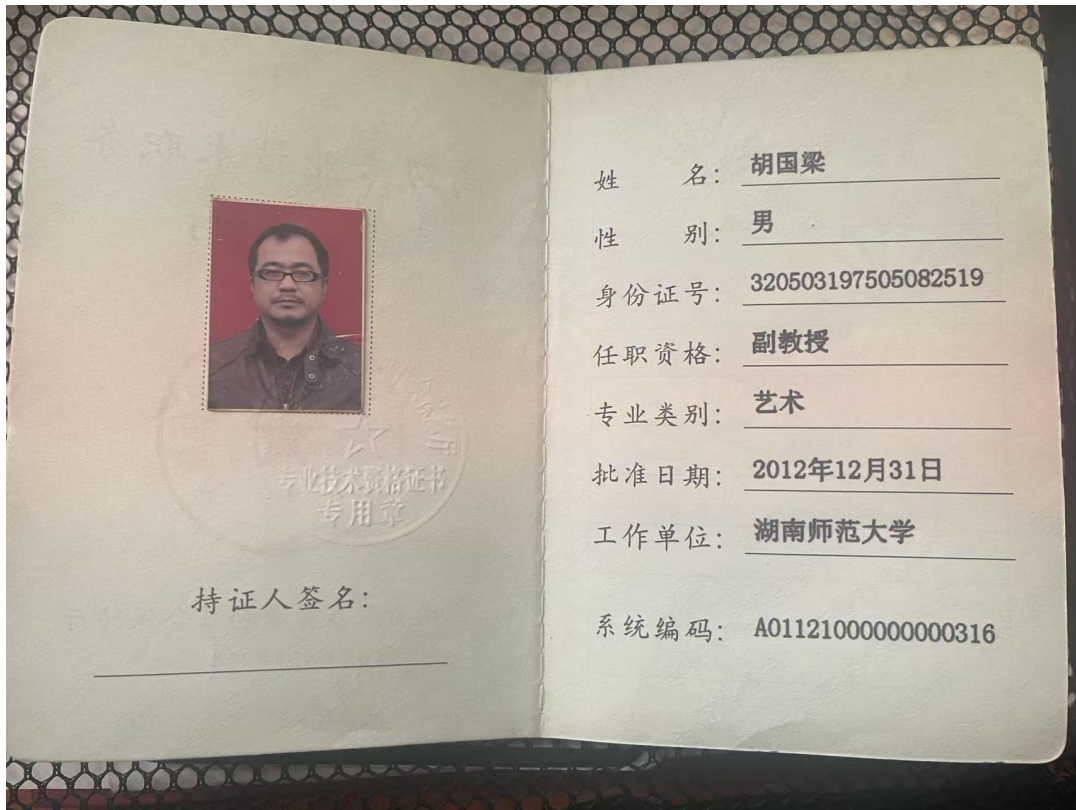 专业技术资格证书
专用章
持证人签名：
姓 名：胡国梁
性 别：男
身份证号：320503197505082519
任职资格：副教授
专业类别：艺术
批准日期：2012年12月31日
工作单位：湖南师范大学
系统编码：A01121000000000316